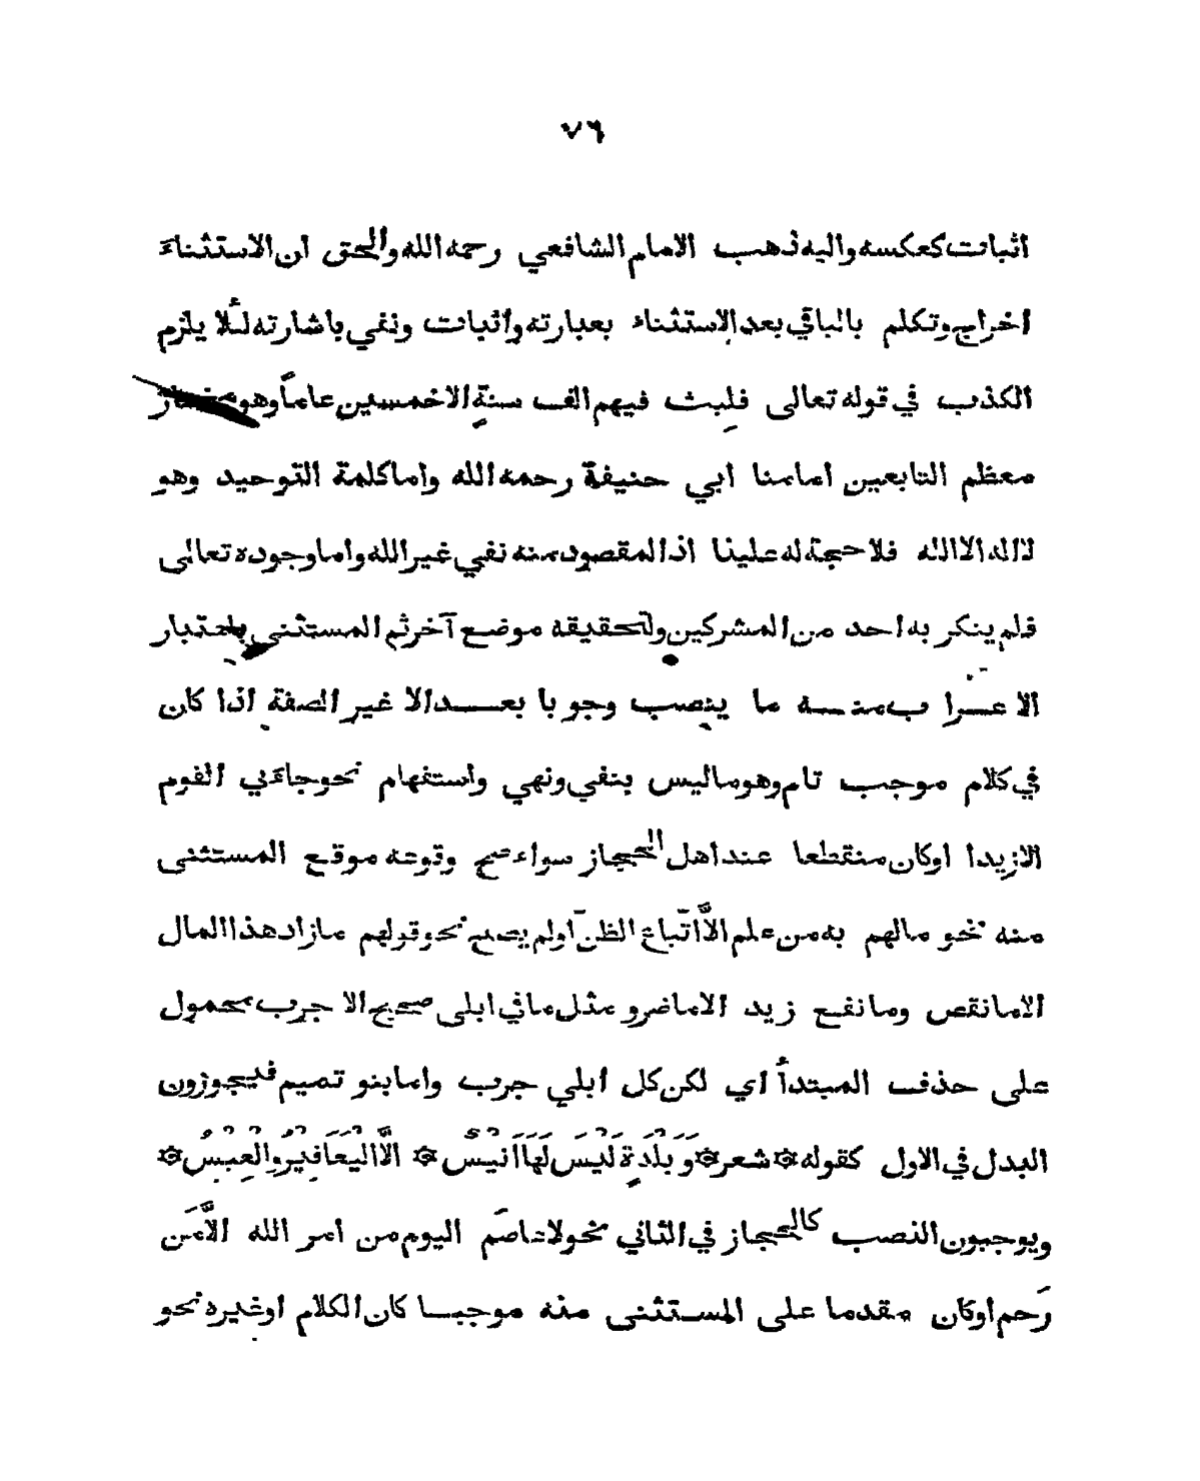 ٧٦
اثبات كعكسه واليه ذهب الامام الشافعي رحمه الله والحق ان الاستثناءَ
اخراج وتكلم بالباقي بعد الاستثناء بعبارته واثبات ونفي باشارته لئلا يلزم
الكذب في قوله تعالى فلبث فيهم الف سنة الا خمسين عاماً وهو مختار
معظم التابعين امامنا ابي حنيفة رحمه الله واما كلمة التوحيد وهو
لا اله الا الله فلا حجة له علينا اذ المقصود منه نفي غير الله واما وجوده تعالى
فلم ينكر به احد من المشركين ولتحقيقه موضع آخر ثم المستثنى باعتبار
الاعراب منه ما ينصب وجوبا بعد الا غير الصفة اذا كان
في كلام موجب تام وهو ما ليس بنفي ونهي واستفهام نحو جاءَني القوم
الا زيدا او كان منقطعا عند اهل الحجاز سواء صح وقوعه موقع المستثنى
منه نحو مالهم به من علم الَّا اتّباع الظنّ او لم يصح نحو قولهم ما زاد هذا المال
الا ما نقص وما نفع زيد الا ما ضر و مثل ما في ابلى صحيح الا جرب محمول
على حذف المبتدأ اي لكن كل ابلي جرب واما بنو تميم فيجوزون
البدل في الاول كقوله ۞ شعر ۞ وَبَلْدَةٍ لَيْسَ لَهَا اَنِيْسٌ ۞ الَّا الْيَعَافِيْرُ وَالْعِيْسُ ۞
ويوجبون النصب كالحجاز في الثاني نحو لا عاصَم اليوم من امر الله الَّا مَن
رَحم او كان مقدما على المستثنى منه موجبا كان الكلام او غيره نحو